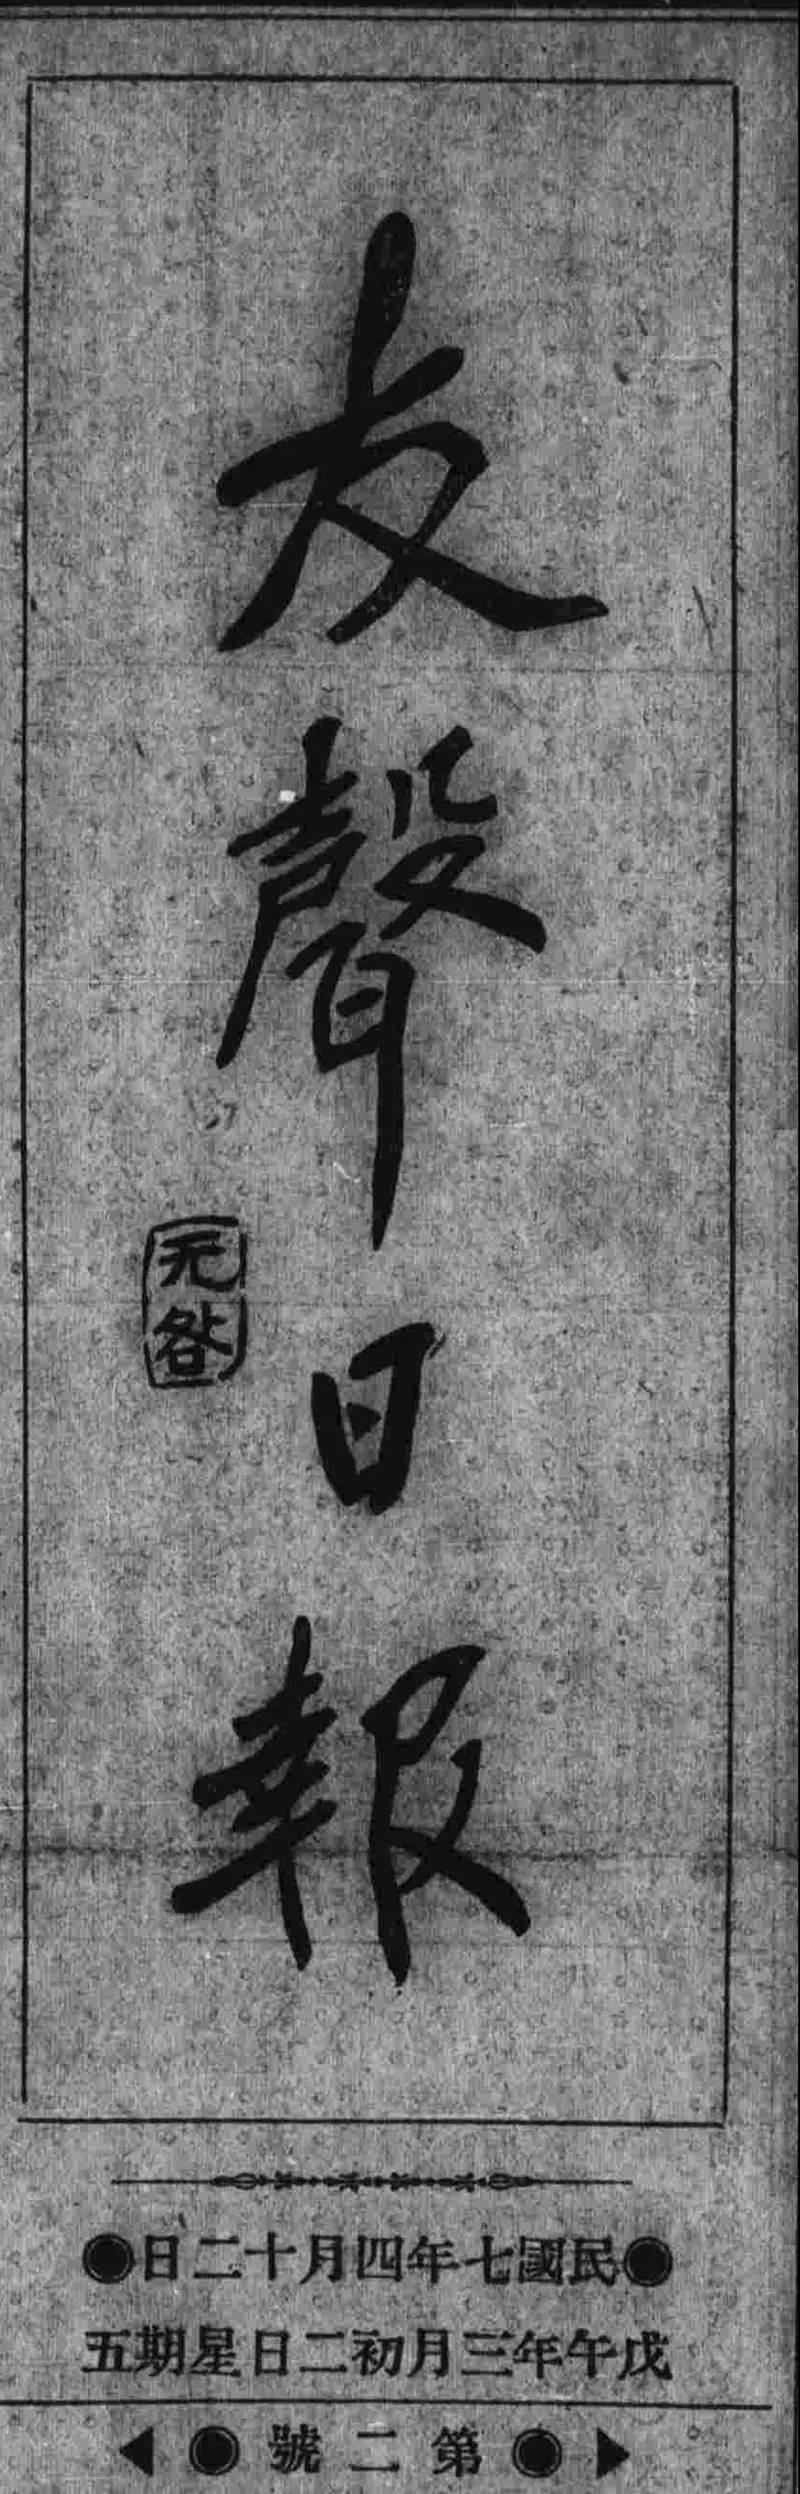 友聲日報
无咎
●民國七年四月十二日●
戊午年三月初二日星期五
第二號